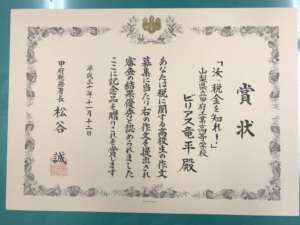 賞状
「汝、税金を知れ！」
山梨県立甲府工業高等学校
ビリアス竜平 殿
あなたは税に関する高校生の作文
募集に当たり右の作文を提出され
審査の結果優秀と認められました
ここに記念品を贈りこれを賞します
平成三十年十一月十二日
甲府税務署長 松谷 誠